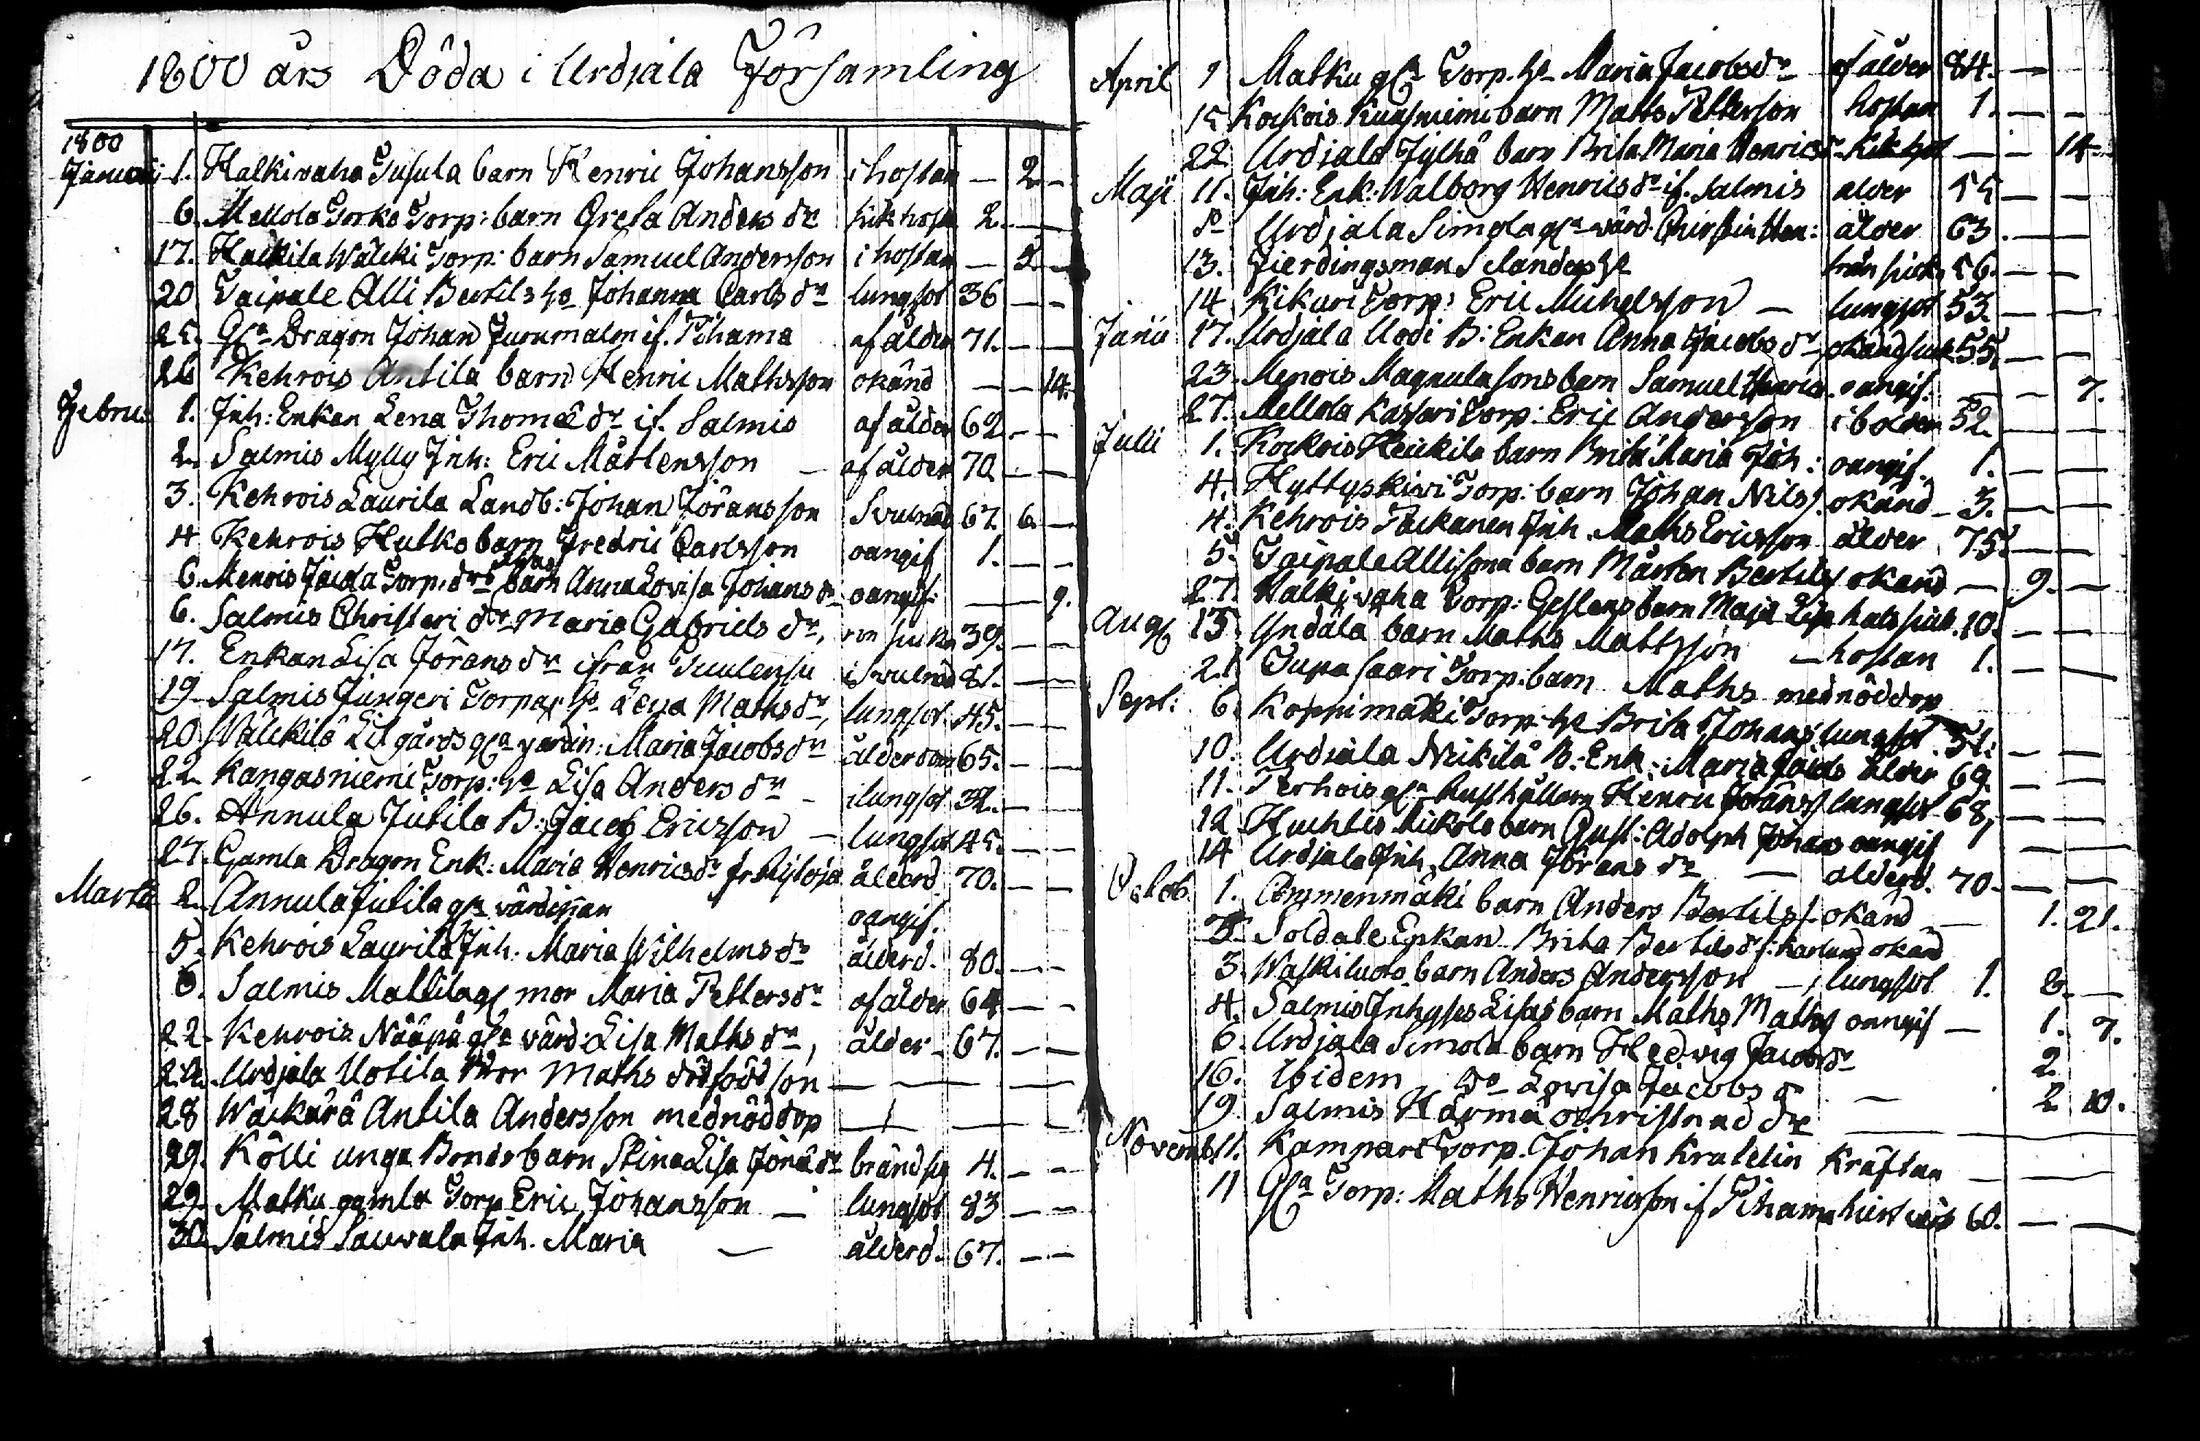 1800 års Döda i Urdjala Församling
1800
Januarii 1. Halkivaha Tusula barn Henric Johansson i hostan — 2. —
6. Mellola Torko Torp: barn Greta Anders dr kikhost 2. — —
17. Halkila Wälcki Torp: barn Samuel Andersson i hostan — 5. —
20 Taipale Alli Bertils ho Johanna Carls dr lungsot 36 — —
25. Gla Dragon Johan Jurumalm if. Pihama af ålder 71. — —
26 Kehrois Antila barn Henric Mathsson okänd — — 14.
Febru 1. Inh: Enkan Lena Thomæ dr if. Salmis af ålder 62. — —
2. Salmis Mylly Inh: Eric Mårtensson — af ålder 70 — —
3. Kehrois Laurila Landb: Johan Jöransson Svulnad 67. 6. —
4 Kehrois Hutko barn Fredric Carlsson oangif 1. — —
6. Menois Torp. drs barn Anna Lovisa Johans dr oangif: — 9.
6. Salmis Christeri dr Maria Gabriels dr, 39. — —
17. Enkan Lisa Jörans dr ifrån i Svulnad 81. — —
19. Salmis Jungeri Torpar ho Lena Maths dr, lungsot 45. — —
20 Wälckilä Lilgårds gla värdin: Maria Jacobs dr ålderdom 65. — —
22 Kangasniemi Torp: ho Lisa Anders dr - i lungsot 32. — —
26. Annula Jutila B: Jacob Ericsson — lungsot 45. — —
27. Gamla Dragon Enk: Maria Henrics dr ålderd 70. — —
Martii 2. Annula Jutila gla värdinnan oangif.
5. Kehrois Laurila Inh: Maria Wilhelms dr ålderd. 80. — —
6. Salmis Mattila gl mor Maria Petters dr af ålder 64 — —
22. Kehrois Nääpä gla värd: Lisa Maths dr, ålder - 67. — —
24. Urdjala Uotila Maths dödfödd son — — —
28 Wäckärä Antila Andersson med nöddop — — —
29. Kölli unga Bonde barn Stina Lisa Jöra dr 4. — —
29. Matku gamla Torp Eric Johansson — lungsot 83 — —
30. Salmis Sauvala Inh. Maria — ålderd. 67. — —
April 1 Matku gla Torp. ho Maria Jacobs dr af ålder 84. —
15 Kockois Kuusniemi barn Matts Petterson hostan 1. — —
22 Urdjala Jylhä barn Brita Maria Henrics dr kikhost — — 14.
Maji 11. Inh: Enk: Walborg Henrics dr if. Salmis ålder 55 — —
Do Urdjala Simola gla värd. Chirstin Hen: ålder 63. — —
13. Fierdingsman ho 56. — —
14 Kikuri Torp: Eric Michelsson — lungsot 53 — —
Junii 17. Urdjala Uodi B: Enkan Anna Jacobs dr 55. — —
23. Menois Magnula sons barn Samuel Henrics. oangif. — — 7.
27. Mellola Kassari Torp: Eric Andersson i bolder 52. — —
Julii 1. Kockois Heickilä barn Brita Maria Joh: oangif. 1. — —
4. Hyttyskivi Torp: barn Johan Nils s. okänd — 3. — —
4. Kehrois Packanen Inh. Maths Ericsson ålder 75. — —
5. Taipale Alli sona barn Mårten Bertils s okänd — 9. —
27. Halkivaha Torp: barn Maja Lisa halssiuk. 10. — —
Aug 15. Yndälä barn Maths Mattsson — hostan 1. — —
21 Jupa saari Torp: barn Maths med nöddop
Sept: 6. Koppimäki Torp: ho Brita Johans lungsot 51. — —
10. Urdiala Neikilä B: Enk: Maria ålder 69. — —
11. Perhois gla Rusthållarn Henric Jörans s lungsot 68, — —
12 Huchtis Mickola barn Gust: Adolph Johans oangif 1 — —
14 Urdjala Inh. Anna Jörans dr — ålderd. 70. — —
Octob. 1. Ammenmäki barn Anders Bertils s. okänd — 1. 21.
3. Soldate Enkan Brita Bertils dr okänd
3. Waskiluoto barn Anders Andersson — lungsot 1. 2. —
4. Salmis Inhyses Lisas barn Maths Maths oangif — 1. 7.
6. Urdjala Simola barn Hedvig Jacobs dr 2
16. Ibidem do Lovisa Jacobs dr — 2 10.
19 Salmis Härmä ochristnad dr — —
Novemb. 1. Kampari Torp. Johan Kratelin kräftan — —
11 Gla Torp: Maths Henricsson if Pihama 60. — —